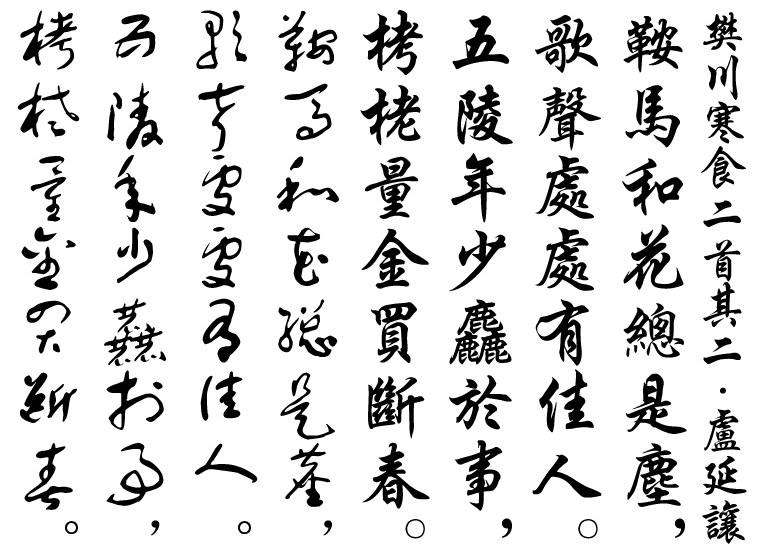 樊川寒食二首其二·盧延讓
鞍馬和花總是塵，
歌聲處處有佳人○
五陵年少麤於事，
栲栳量金買斷春○
鞍馬和花總是塵，
歌聲處處有佳人。
五陵年少麤於事，
栲栳量金買斷春。